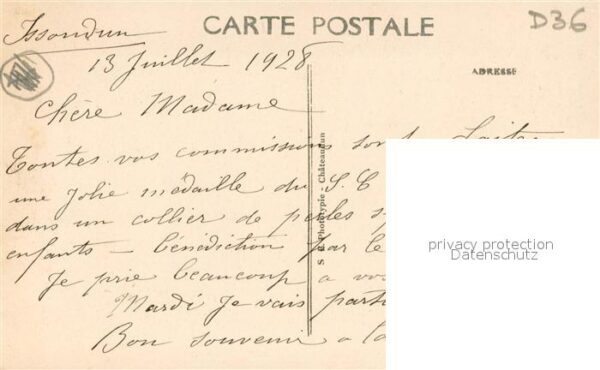 Issoudun
CARTE POSTALE
D36
13 Juillet 1928
ADRESSE
Chère Madame
Toutes vos commissions sont faites
une jolie médaille du S. C
dans un collier de perles
enfants - bénédiction par le
Je prie beaucoup a vos
Mardi je vais parti
Bon souvenir a la
Phototypie - Châteaudun
privacy protection
Datenschutz